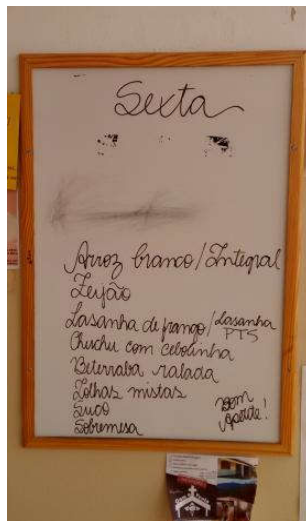 Sexta
Arroz branco/Integral
Feijão
Lasanha de frango/Lasanha
PTS
Chuchu com cebolinha
Beterraba ralada
Folhas mistas
Suco
Sobremesa
Bom
Apetite!